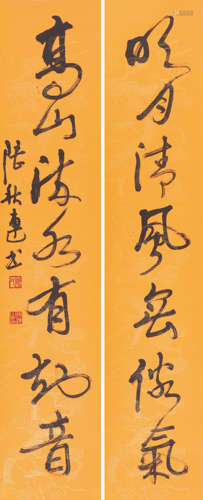 明月清風無俗氣
高山流水有知音
秋連书